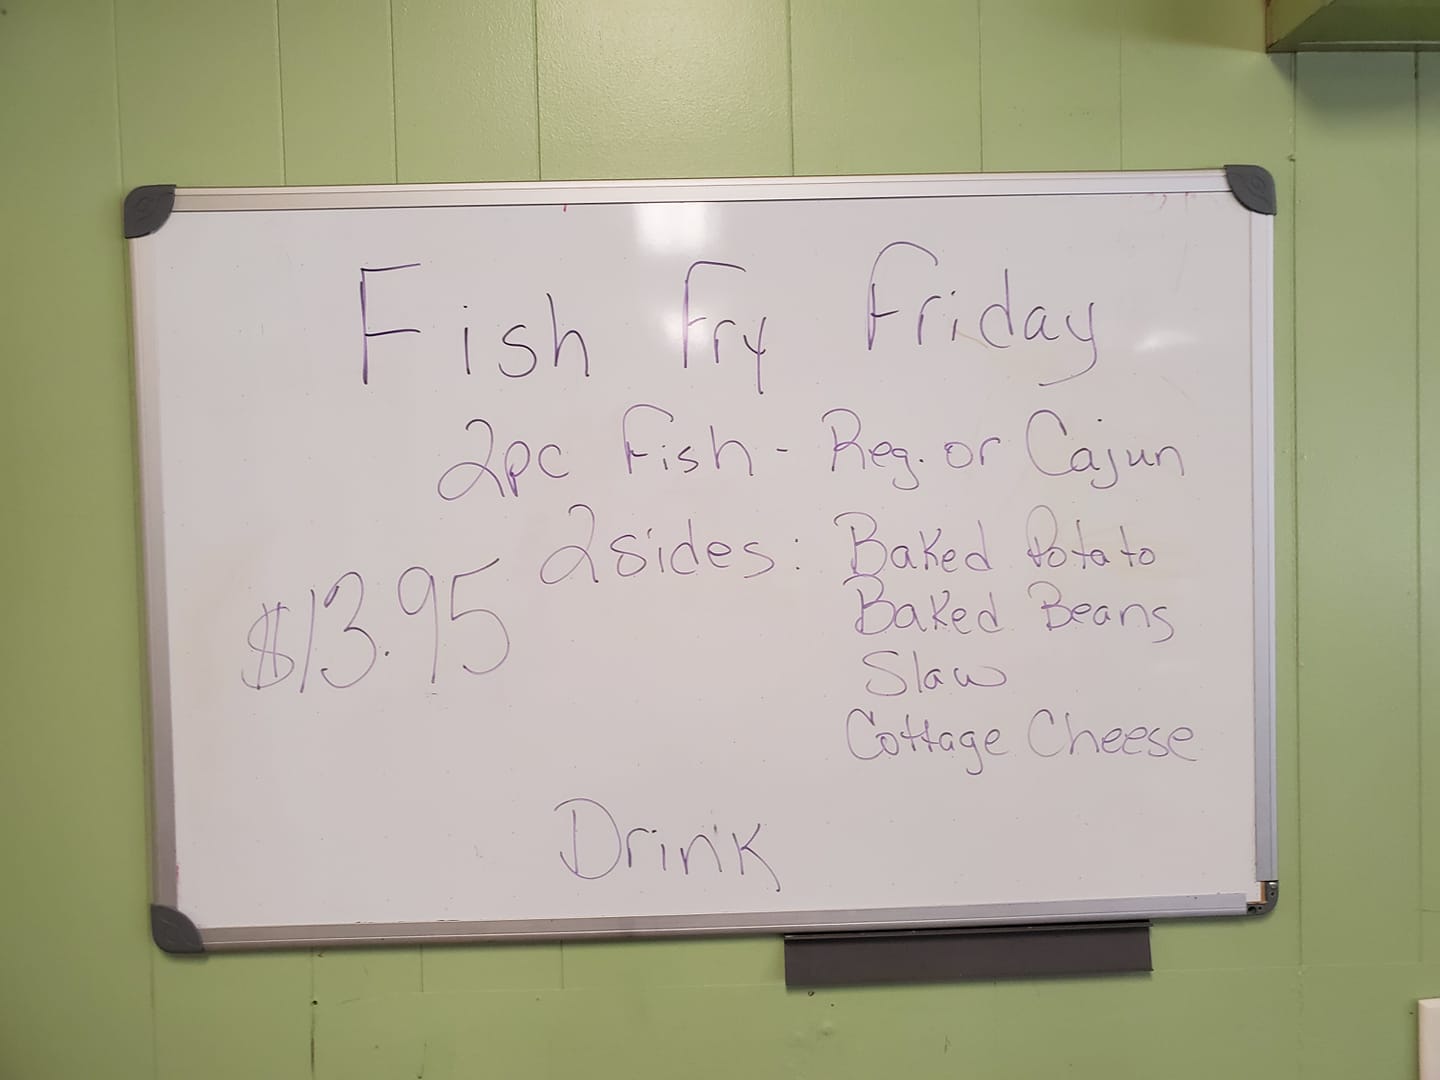 Fish Fry Friday
2pc Fish - Reg. or Cajun
2 sides: Baked Potato
Baked Beans
$13.95
Slaw
Cottage Cheese
Drink